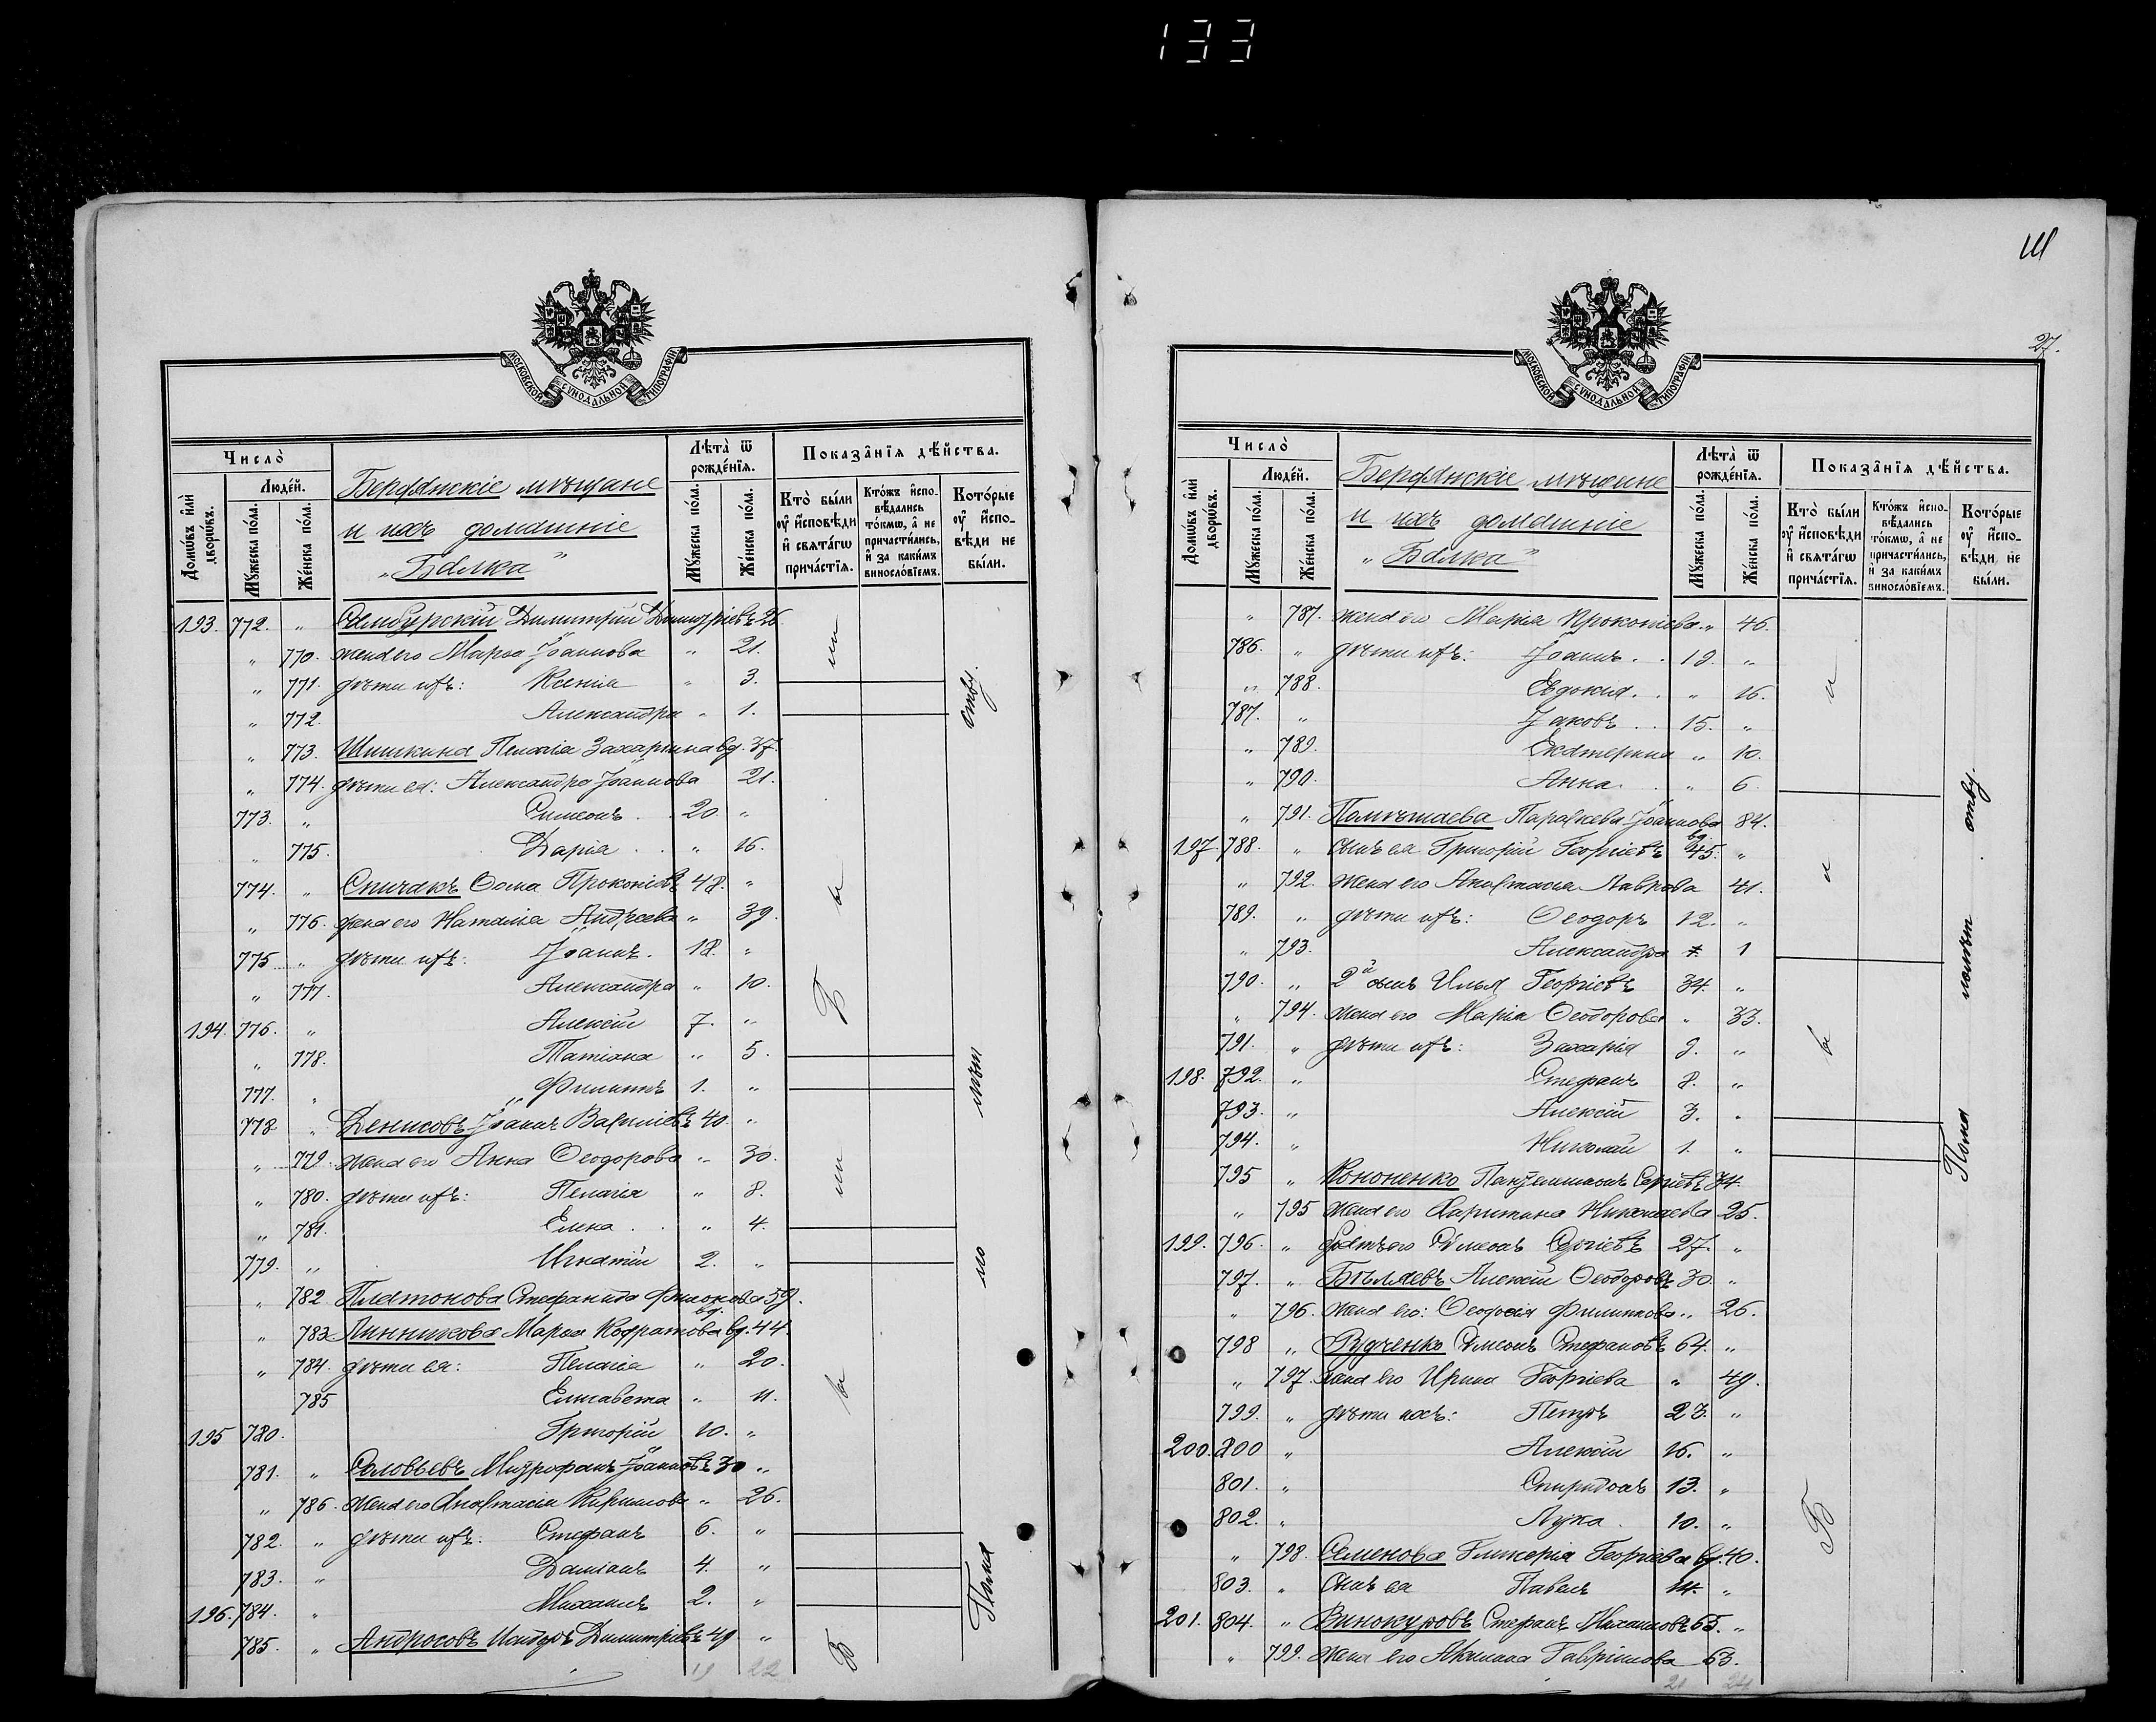 133
МОСКОВСКОЙ СѴНОДАЛЬНОЙ ТИПОГРАФІИ.
Число̀
Домѡ́въ и҆лѝ дворѡ́въ.
Люде́й.
Мꙋ́жеска по́ла.
Же́нска по́ла.
Бердянскіе мѣщане
и ихъ домашніе
„Балка"
Лѣта̀ ѿ рожде́нїѧ.
Мꙋ́жеска по́ла.
Же́нска по́ла.
Показа̑нїѧ дѣ́йства.
Кто̀ бы́ли оу҆ и҆сповѣ́ди и҆ свѧта́гѡ прича́стїѧ.
Кто́жъ и҆сповѣ́дались то́кмѡ, а҆ не причасти́лись, и҆ за каки́мъ винносло́вїемъ.
Кото́рые оу҆ и҆сповѣ́ди не бы́ли.
193. 772. „ Самбурскій Димитрій Димитріевъ 26.
„ 770. жена его Марѳа Іоаннова „ 21.
„ 771. дѣти ихъ: Ксенія „ 3.
„ 772. Александра „ 1.
„ 773. Шишкина Пелагія Захаріина вд. 37.
„ 774. дѣти ея: Александра Іоаннова 21.
773. „ Симеонъ . . 20. „
„ 775. Дарія . . „ 16.
774. „ Спичакъ Ѳома Прокопіевъ 48. „
„ 776. жена его Наталія Андреева „ 39.
775 „ дѣти ихъ: Іоаннъ. 18. „
„ 777. Александра „ 10.
194. 776. „ Алексій 7. „
„ 778. Татіана „ 5.
777. „ Филиппъ 1. „
778 „ Денисовъ Іоаннъ Василіевъ 40. „
„ 779. жена его Анна Ѳеодорова „ 30.
„ 780. дѣти ихъ: Пелагія „ 8.
„ 781. Елена . . „ 4.
779. „ Игнатій 2. „
„ 782 Платонова Стефанида Филонова вд. 59.
„ 783 Линникова Марѳа Кодратова вд. 44.
„ 784. дѣти ея: Пелагія „ 20.
785 Елисавета „ 11.
195 780. Григорій 10. „
781. „ Соловьевъ Митрофанъ Іоанновъ 30 „
„ 786. жена его Анастасія Кирилова „ 26.
782. „ дѣти ихъ: Стефанъ 6. „
783. „ Даміанъ 4. „
196. 784. „ Михаилъ 2. „
785. „ Андросовъ Исидоръ Димитріевъ 49 „
19 22
Б ы л и
Б ы л и
По мал лѣт отву.
Ш
27.
МОСКОВСКОЙ СѴНОДАЛЬНОЙ ТИПОГРАФІИ.
Число̀
Домѡ́въ и҆лѝ дворѡ́въ.
Люде́й.
Мꙋ́жеска по́ла.
Же́нска по́ла.
Бердянскіе мѣщане
и ихъ домашніе
„Балка"
Лѣта̀ ѿ рожде́нїѧ.
Мꙋ́жеска по́ла.
Же́нска по́ла.
Показа̑нїѧ дѣ́йства.
Кто̀ бы́ли оу҆ и҆сповѣ́ди и҆ свѧта́гѡ прича́стїѧ.
Кто́жъ и҆сповѣ́дались то́кмѡ, а҆ не причасти́лись, и҆ за каки́мъ винносло́вїемъ.
Кото́рые оу҆ и҆сповѣ́ди не бы́ли.
„ 787. жена его Марія Прокопіева „ 46.
786. „ дѣти ихъ: Іоаннъ . . 19. „
„ 788. Евдокія. . „ 16.
787. „ Іаковъ . . 15. „
„ 789. Екатерина „ 10.
„ 790. Анна. . „ 6.
„ 791. Полѣтаева Параскева Іоаннова вд. 84.
197. 788. „ сынъ ея Григорій Георгіевъ 45. „
„ 792. жена его Анастасія Лаврова 41.
789. „ дѣти ихъ: Ѳеодоръ 12. „
„ 793. Александра „ 1
790. „ 2й сынъ Илья Георгіевъ 34. „
„ 794. жена его Марія Ѳеодорова „ 33.
791. „ дѣти ихъ: Захарія 9. „
198. 792. „ Стефанъ 8. „
793. „ Алексій 3. „
794. „ Николай 1. „
795 „ Кононенко Пантелиимонъ Сергіевъ 34.
„ 795 жена его Харитина Николаева 25.
199. 796. „ братъ его Сѵмеонъ Сергіевъ 27. „
797. „ Бѣляевъ Алексій Ѳеодоровъ 30. „
„ 796. жена его: Ѳеодосія Филиппова „ 26.
798 „ Рудченко Сѵмеонъ Стефановъ 64. „
„ 797. жена его Ирина Георгіева „ 49.
799. „ дѣти ихъ: Петръ 23. „
200. 800 „ Алексій 16. „
801. „ Спиридонъ 13. „
802. „ Лука . 10. „
„ 798. Семенова Гликерія Георгіева вд. 40.
803. „ сынъ ея Павелъ 14. „
201. 804. „ Винокуровъ Стефанъ Михаиловъ 65. „
„ 799. жена его Акилина Гавріилова 63.
21 24
Б ы л и